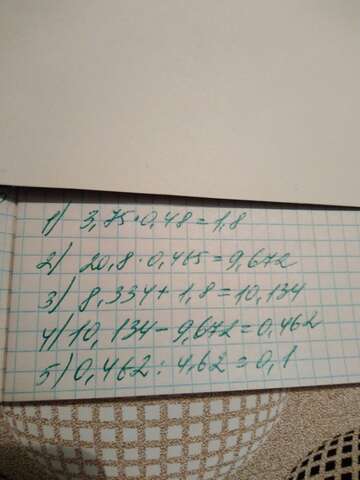 1) 3,75·0,48=1,8
2) 20,8·0,465=9,672
3) 8,334+1,8=10,134
4) 10,134-9,672=0,462
5) 0,462:4,62=0,1